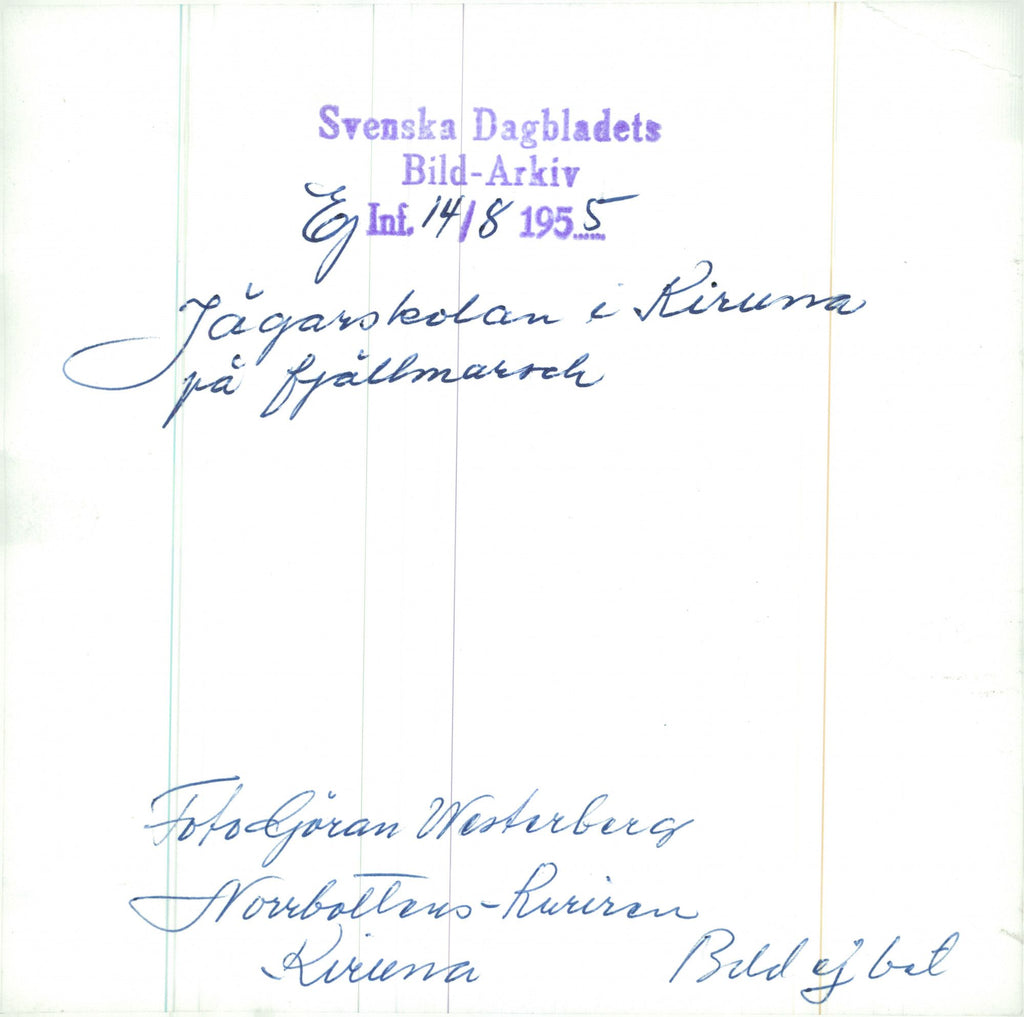 Svenska Dagbladets
Bild-Arkiv
Ej Inf. 14/8 1955
Jägarskolan i Kiruna
på fjällmarsch
Foto Göran Westerberg
Norrbottens-Kuriren
Kiruna
Bild ej bet